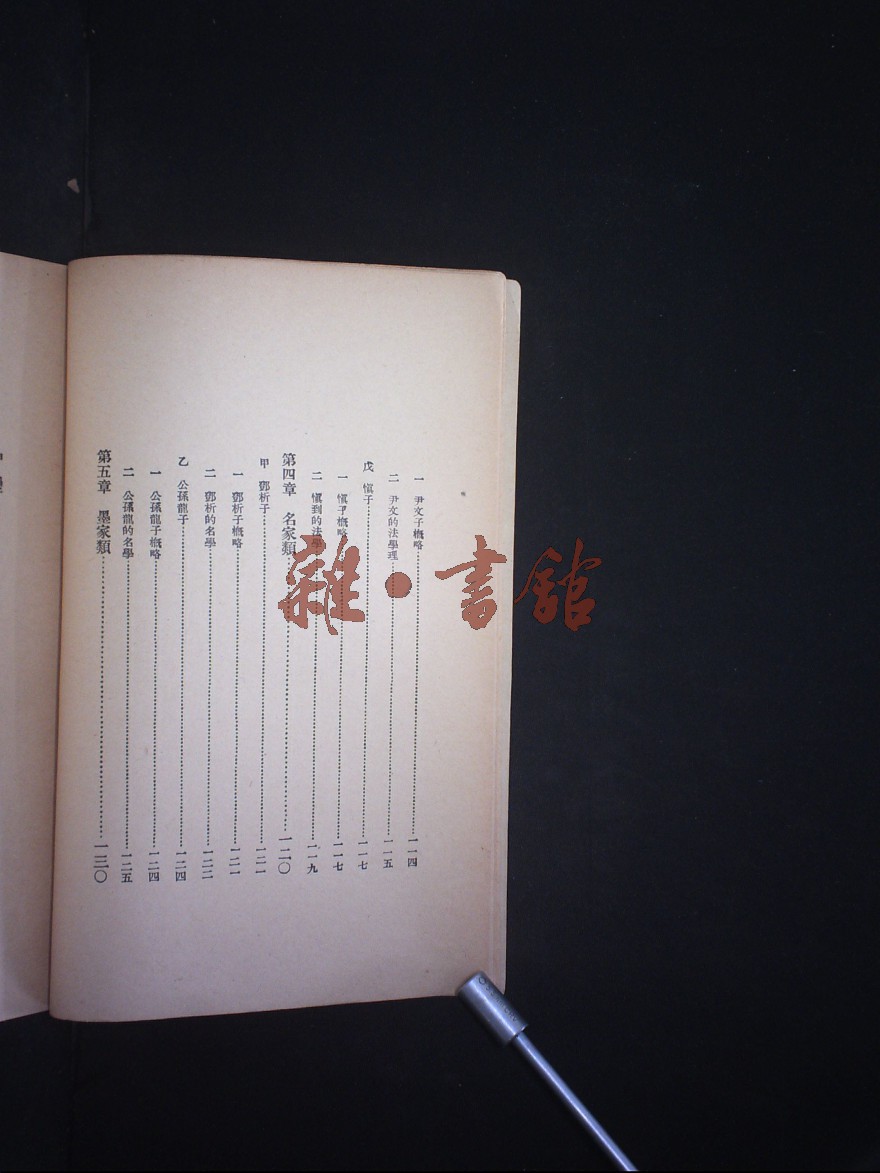 一 尹文子概略……一一四
二 尹文的法學理……一一五
戊 愼子……一一七
一 愼子概略……一一七
二 愼到的法學……一一九
第四章 名家類……一二〇
甲 鄧析子……一二一
一 鄧析子概略……一二一
二 鄧析的名學……一二二
乙 公孫龍子……一二四
一 公孫龍子概略……一二四
二 公孫龍的名學……一二五
第五章 墨家類……一三〇
雜·書館